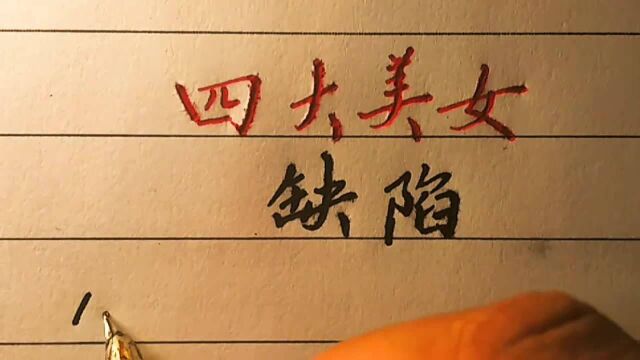 四大美女
缺陷